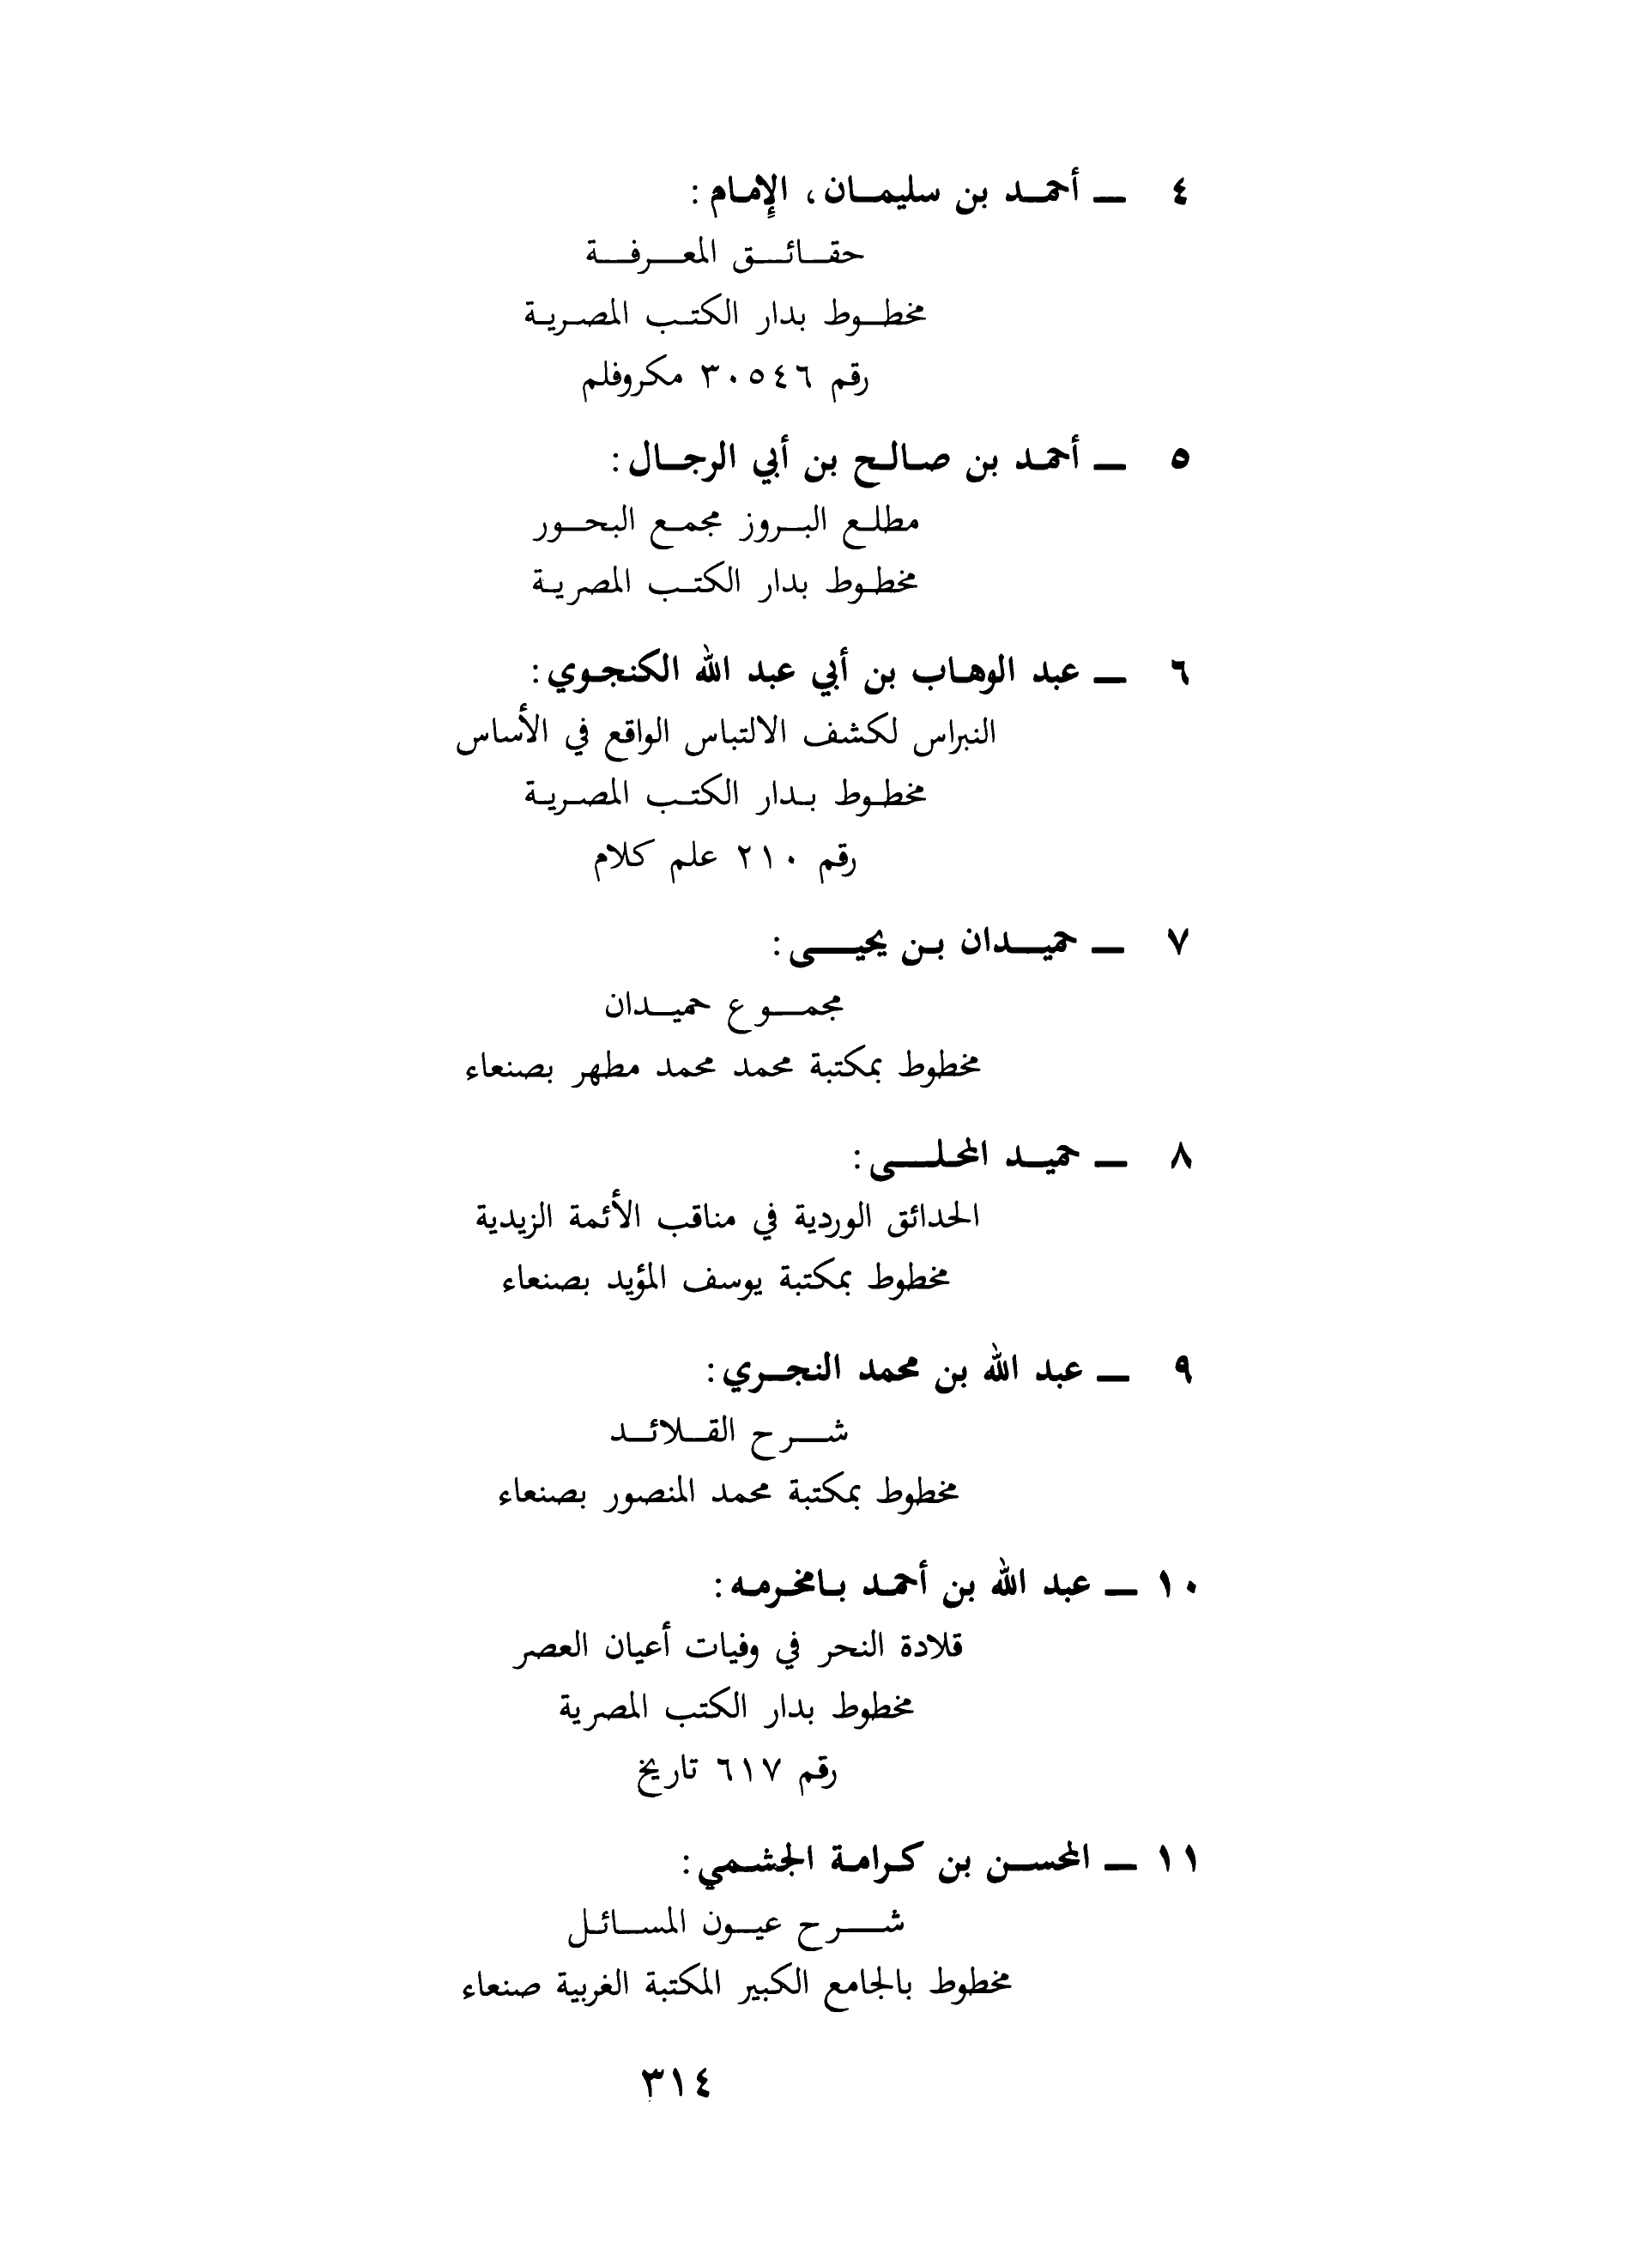 ٤ — أحمد بن سليمان، الإمام:
حقائق المعرفة
مخطوط بدار الكتب المصرية
رقم ٣٠٥٤٦ مكروفلم
٥ — أحمد بن صالح بن أبي الرجال:
مطلع البروز مجمع البحور
مخطوط بدار الكتب المصرية
٦ — عبد الوهاب بن أبي عبد الله الكنجوي:
النبراس لكشف الالتباس الواقع في الأساس
مخطوط بدار الكتب المصرية
رقم ٢١٠ علم كلام
٧ — حميدان بن يحيى:
مجموع حميدان
مخطوط بمكتبة محمد محمد مطهر بصنعاء
٨ — حميد المحلى:
الحدائق الوردية في مناقب الأئمة الزيدية
مخطوط بمكتبة يوسف المؤيد بصنعاء
٩ — عبد الله بن محمد النجري:
شرح القلائد
مخطوط بمكتبة محمد المنصور بصنعاء
١٠ — عبد الله بن أحمد بامخرمه:
قلادة النحر في وفيات أعيان العصر
مخطوط بدار الكتب المصرية
رقم ٦١٧ تاريخ
١١ — المحسن بن كرامة الجشمي:
شرح عيون المسائل
مخطوط بالجامع الكبير المكتبة الغربية صنعاء
٣١٤